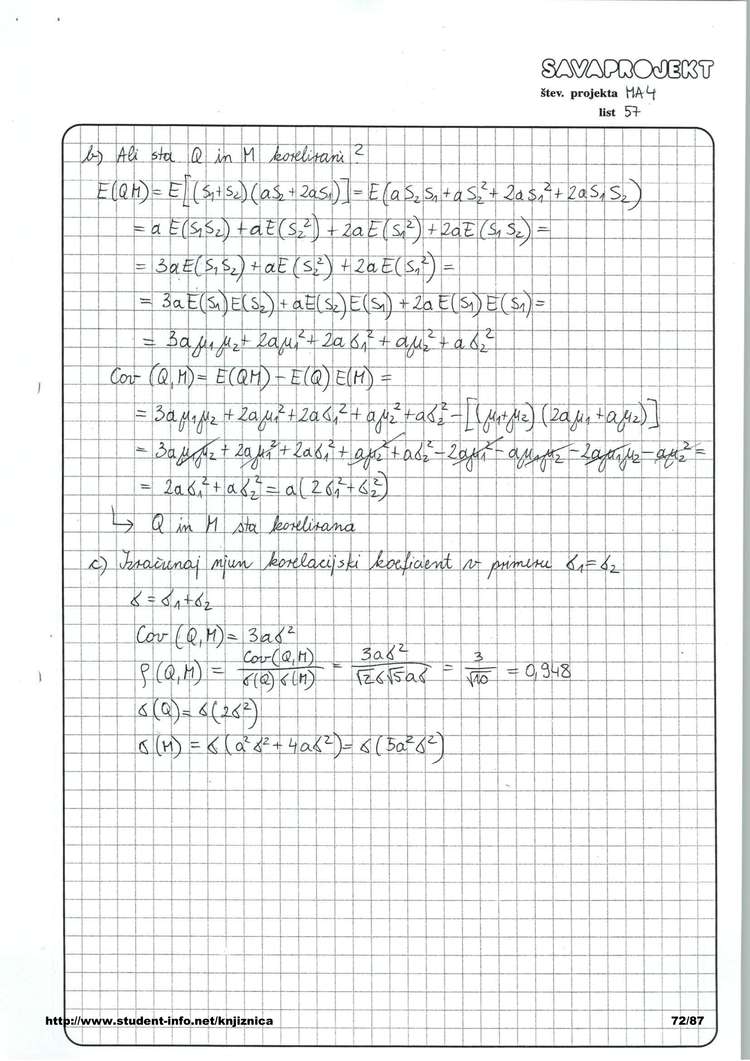 SAVAPROJEKT
štev. projekta MA4
list 57
b) Ali sta Q in M korelirani?
E(QM) = E[(S₁+S₂)(aS₂+2aS₁)] = E(aS₂S₁+aS₂²+2aS₁²+2aS₁S₂)
= aE(S₁S₂)+aE(S₂²)+2aE(S₁²)+2aE(S₁S₂) =
= 3aE(S₁S₂)+aE(S₂²)+2aE(S₁²) =
= 3aE(S₁)E(S₂)+aE(S₂)E(S₁)+2aE(S₁)E(S₁) =
= 3aμ₁μ₂+2aμ₁²+2aσ₁²+aμ₂²+aσ₂²
Cov(Q,M) = E(QM)-E(Q)E(M) =
= 3aμ₁μ₂+2aμ₁²+2aσ₁²+aμ₂²+aσ₂²-[(μ₁+μ₂)(2aμ₁+aμ₂)]
= 3aμ₁μ₂+2aμ₁²+2aσ₁²+aμ₂²+aσ₂²-2aμ₁²-aμ₁μ₂-2aμ₁μ₂-aμ₂² =
= 2aσ₁²+aσ₂² = a(2σ₁²+σ₂²)
↳ Q in M sta korelirana
c) Izračunaj njun korelacijski koeficient v primeru σ₁=σ₂
σ = σ₁+σ₂
Cov(Q,M) = 3aσ²
ρ(Q,M) = Cov(Q,M)/σ(Q)σ(M) = 3aσ²/√2σ√5aσ = 3/√10 = 0,948
σ(Q) = σ(2σ²)
σ(M) = σ(a²σ²+4aσ²) = σ(5a²σ²)
http://www.student-info.net/knjiznica
72/87